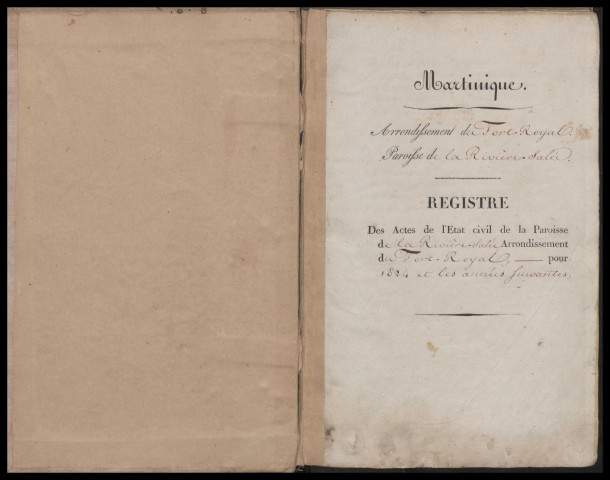 Martinique.
Arrondissement du Fort-Royal.
Paroisse de la Rivière-Salée.
REGISTRE
Des Actes de l'Etat civil de la Paroisse
de la Rivière-Salée Arrondissement
du Fort-Royal, — pour
1824 et les années suivantes.